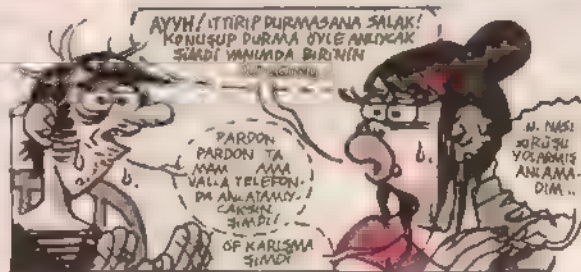 AYYH! İTTİRİP DURMASANA SALAK!
KONUŞUP DURMA ÖYLE ANLIYCAK
ŞİMDİ YANIMDA BİRİNİN
PARDON
PARDON TA
MAM AMA
VALLA TELEFON-
DA ANLATAMIY-
CAKSIN
ŞİMDİ!
OF KARIŞMA
ŞİMDİ
..N. NASI
YOLARMIŞ
ANLAMA-
DIM..